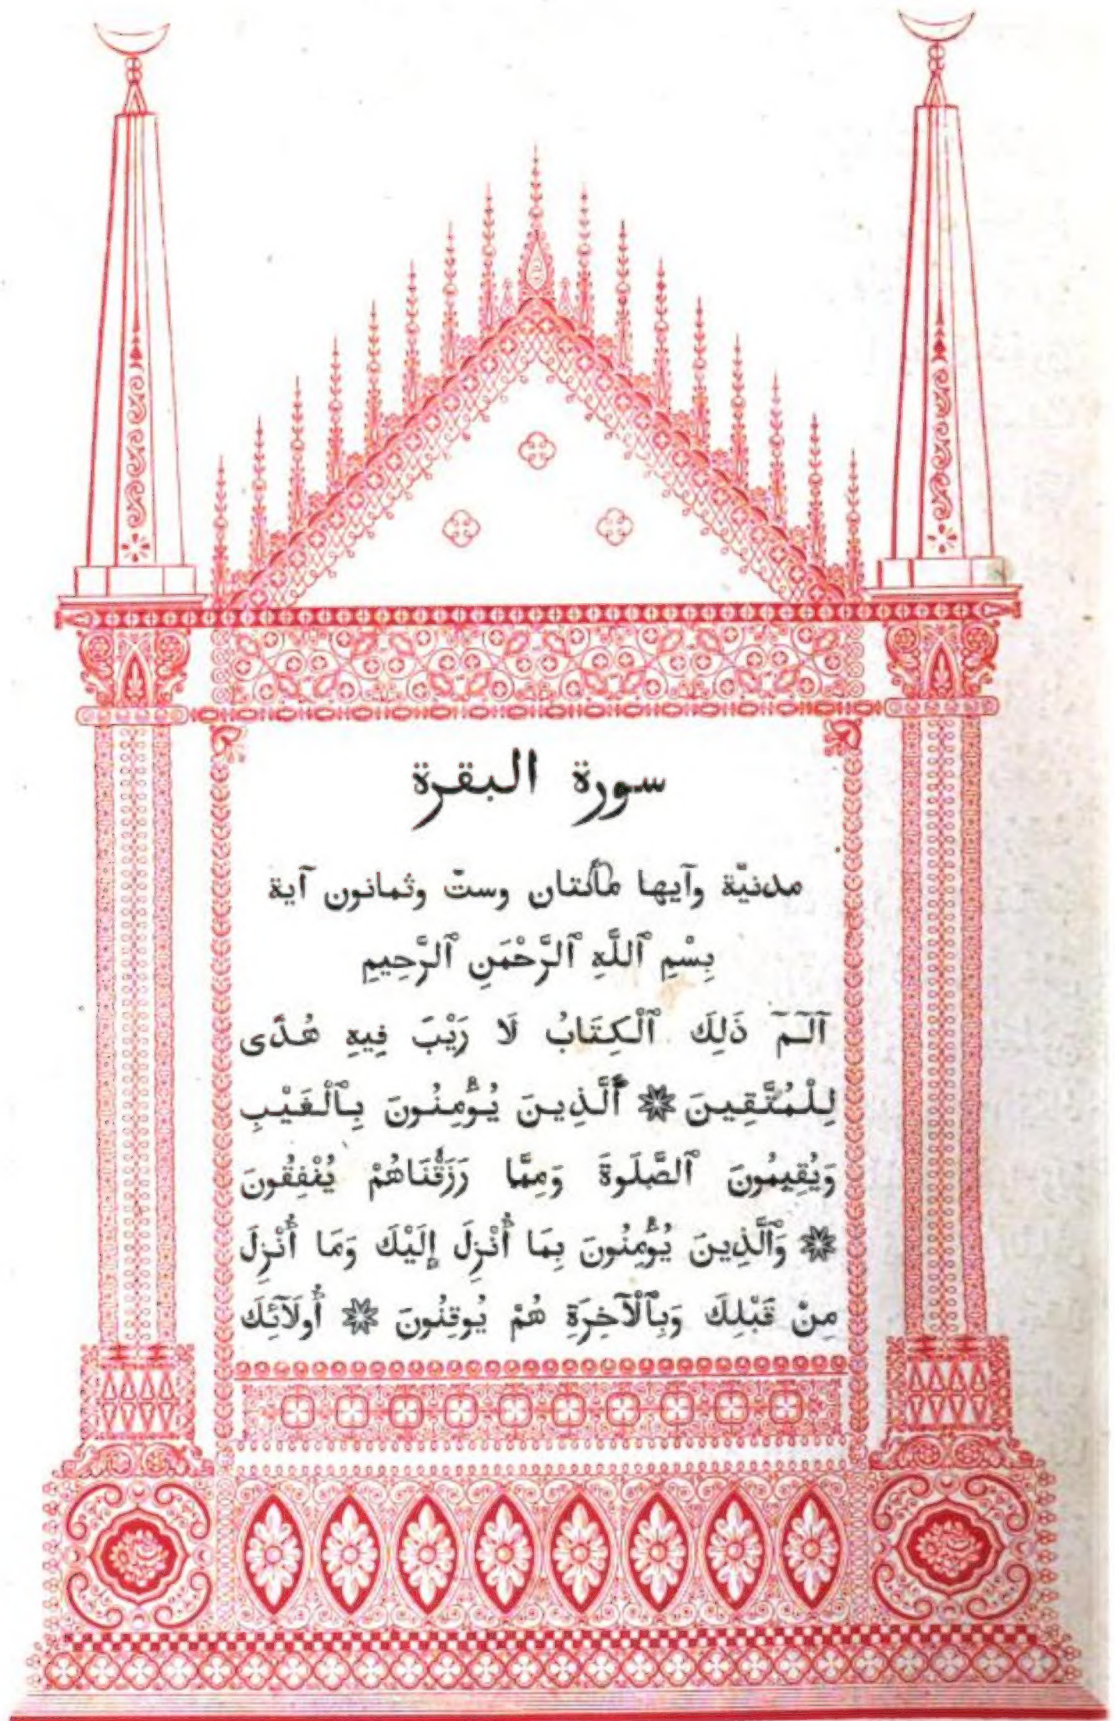 سورة البقرة
مدنيّة وآيها مأئتان وستّ وثمانون آية
بِسْمِ ٱللَّهِ ٱلرَّحْمَنِ ٱلرَّحِيمِ
آلٓمٓ ذَلِكَ ٱلْكِتَابُ لَا رَيْبَ فِيهِ هُدًى
لِلْمُتَّقِينَ ۞ أَلَّذِينَ يُؤْمِنُونَ بِٱلْغَيْبِ
وَيُقِيمُونَ ٱلصَّلَوةَ وَمِمَّا رَزَقْنَاهُمْ يُنْفِقُونَ
۞ وَٱلَّذِينَ يُؤْمِنُونَ بِمَا أُنْزِلَ إِلَيْكَ وَمَا أُنْزِلَ
مِنْ قَبْلِكَ وَبِٱلْآخِرَةِ هُمْ يُوقِنُونَ ۞ أُولَآئِكَ